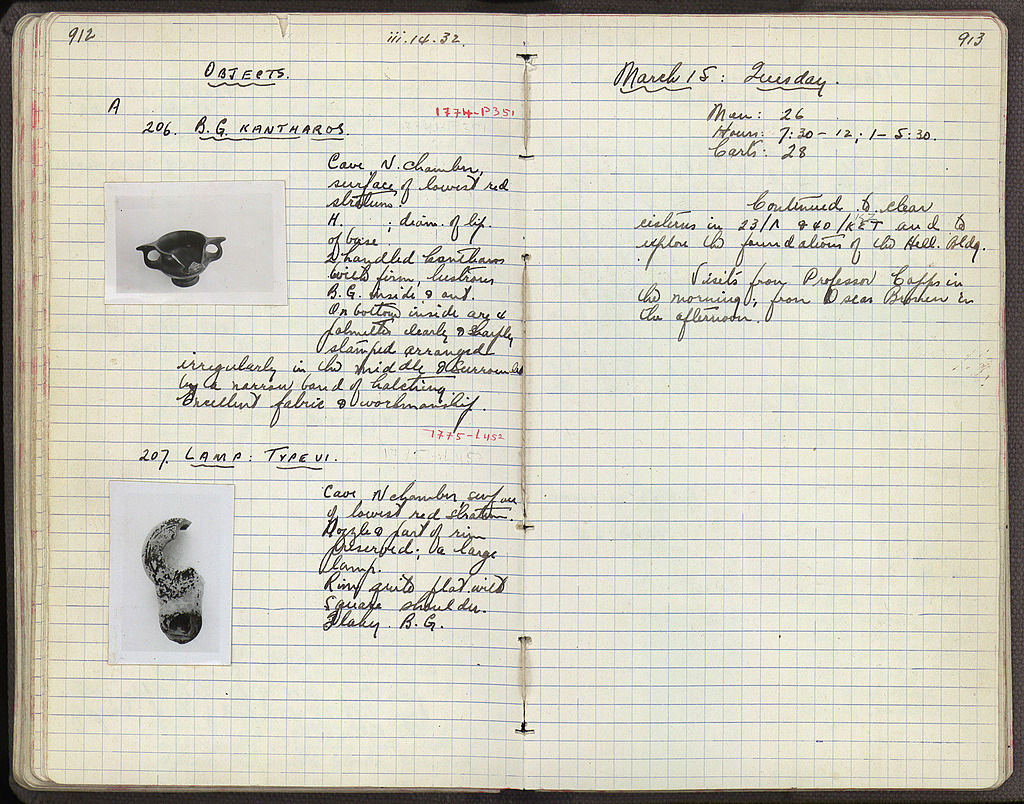 912
iii.14.32.
OBJECTS.
A
1774-P351
206. B.G. KANTHAROS.
Cave N. chamber,
surface of lowest red
stratum.
H. ; diam. of lip.
of base.
2 handled kantharos
with firm, lustrous
B.G. inside & out.
On bottom inside are 4
palmettes clearly & sharply
stamped arranged
irregularly in the middle & surrounded
by a narrow band of hatching.
Excellent fabric & workmanship.
1775-L452
207. LAMP: TYPE VI.
Cave N chamber, surface
of lowest red stratum.
Nozzle & part of rim
preserved; a large
lamp.
Rim quite flat with
square shoulder.
Flaky B.G.
913
March 15: Tuesday.
Men: 26
Hours: 7:30 - 12; 1 - 5:30.
Carts: 28
Continued to clear
cisterns in 23/Λ & 40/ and to
explore the foundations of the Hell. Bldg.
Visits from Professor Capps in
the morning; from Oscar Broneer in
the afternoon.